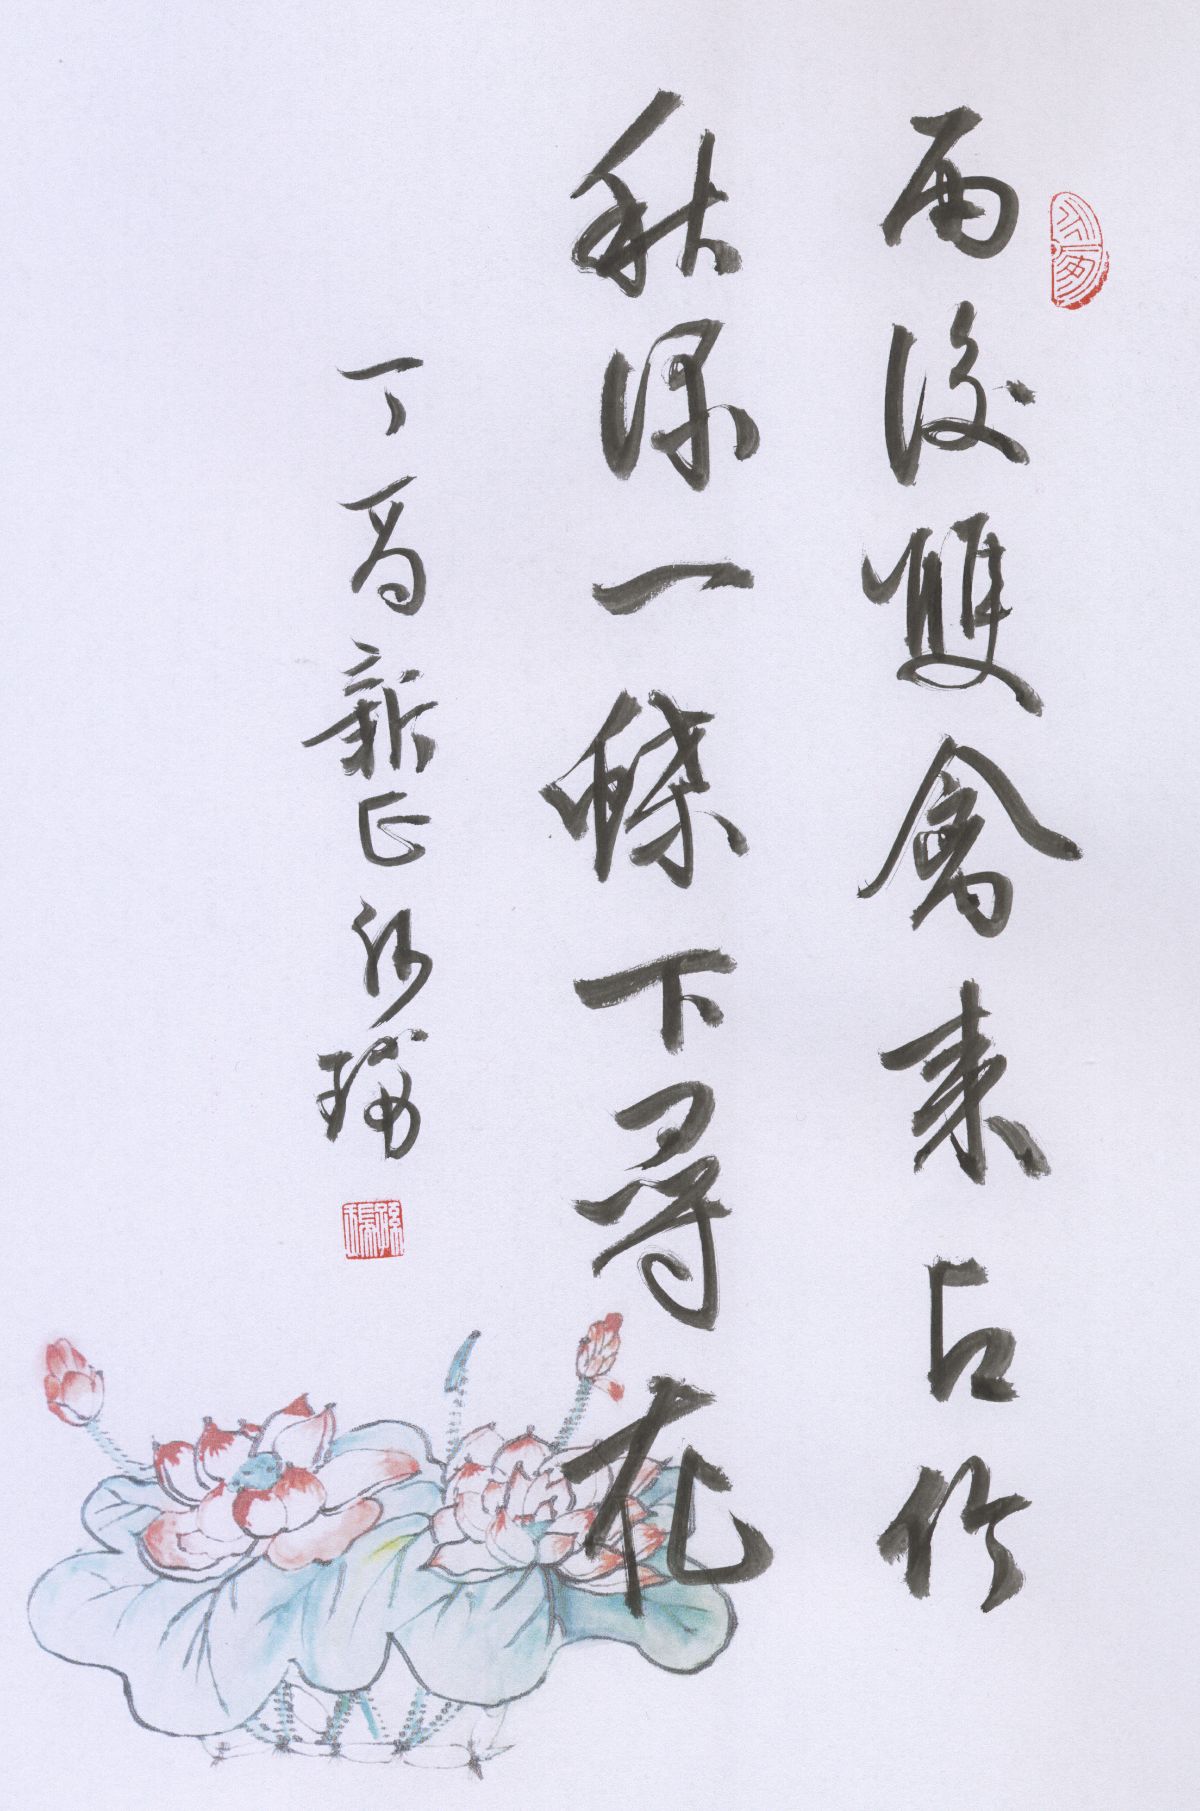 雨後雙禽來占竹
秋深一蝶下尋花
丁酉新正